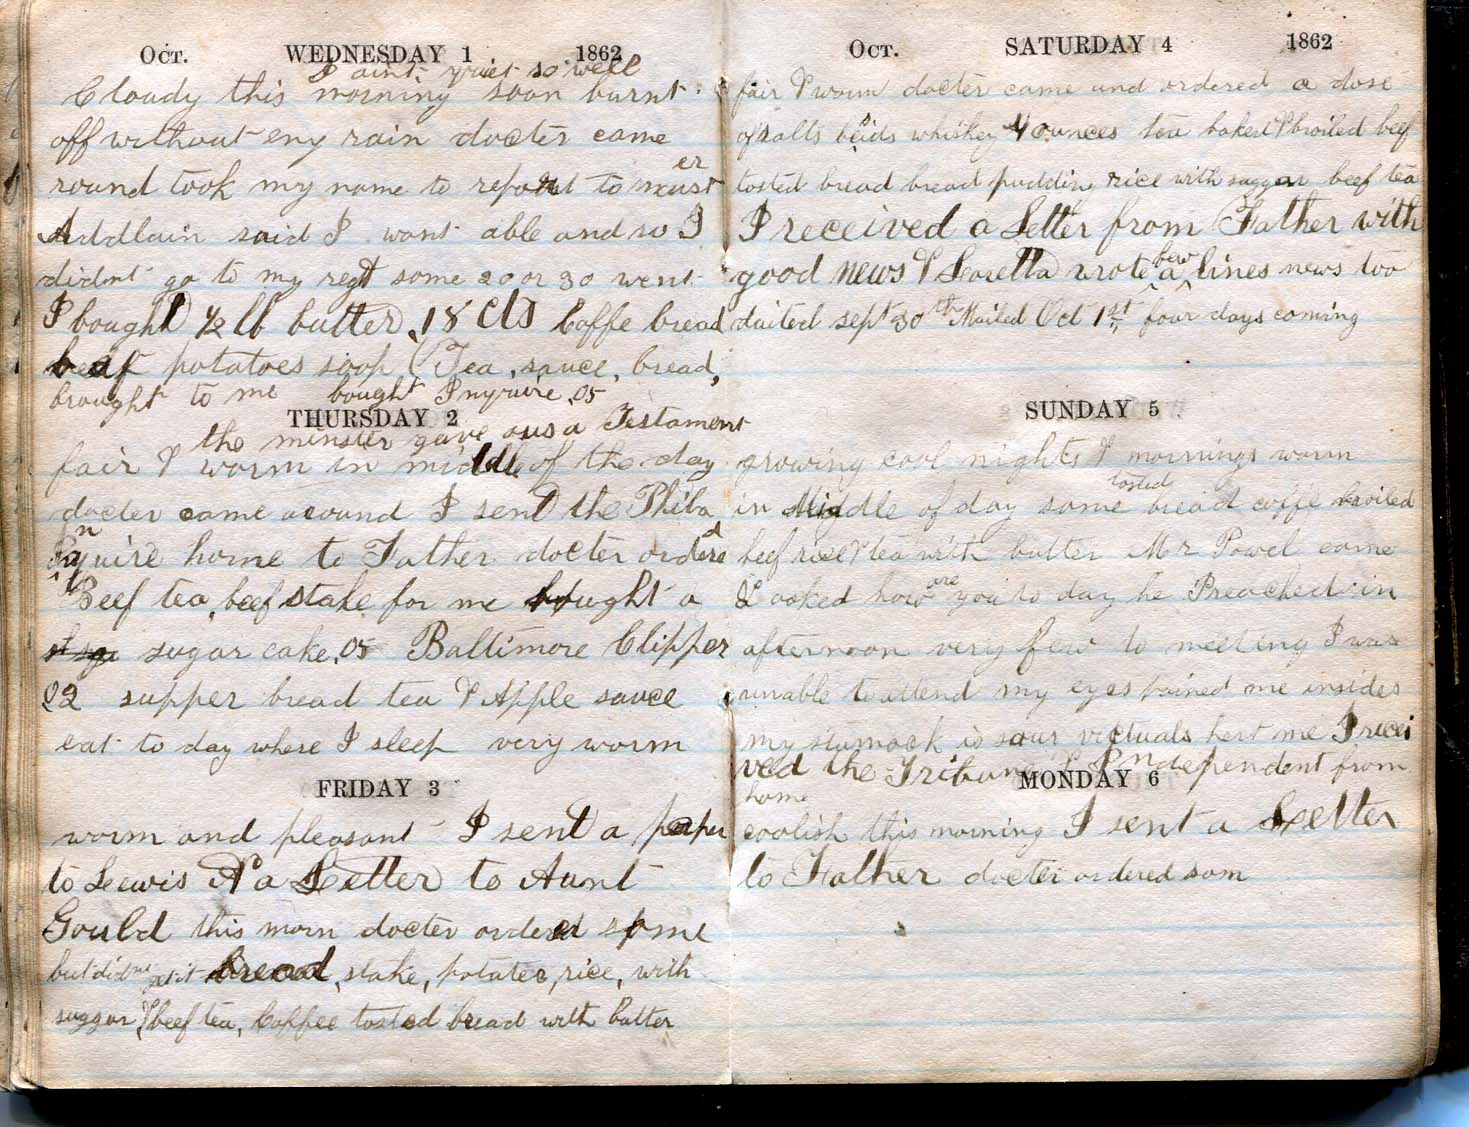 Oct. WEDNESDAY 1 1862
I aint quiet so well
Cloudy this morning soon burnt
off without eny rain docter came
round took my name to report to
er
Addlain said I want able and so I
didnt go to my regt some 20 or 30 went
I bought ½ lb butter, 18 cts Coffe bread
beaf potatoes soop (Tea, sauce, bread,
brought to me bought Inquire, 05
THURSDAY 2
the minster gave us a Testament
fair & worm in middle of the day
docter came around I sent the Phila
Inquire home to Father docter orderd
Beef tea, beef stake for me bought a
sugar cake, 05 Baltimore Clipper
02 supper bread tea & Apple sauce
eat to day where I sleep very worm
FRIDAY 3
worm and pleasant I sent a paper
to Leewis A & a Letter to Aunt
Gould this morn docter ordered some
but did not git it bread, stake, potatoe, rice, with
suggar, & beef tea, Coffee tosted bread with butter
Oct. SATURDAY 4 1862
fair & worm docter came and ordered a dose
of salts besids whiskey 4 ounces tea baked & broiled beef
tosted bread bread pudding rice with suggar beef tea
I received a Letter from Father with
good news & Loretta wrote a few lines news too
daited sept 30th Mailed Oct 1st four days coming
SUNDAY 5
growing cool nights & mornings worm
in Middle of day some tosted bread coffe broiled
beef rice & tea with butter Mr Powel came
& asked how are you to day he Preached in
afternoon very few to meeting I was
unable to attend my eyes pained me insides
my stumack is sour victuals hert me I recei
ved the Tribune & Independent from
MONDAY 6
home
coolish this morning I sent a Letter
to Father docter ordered som